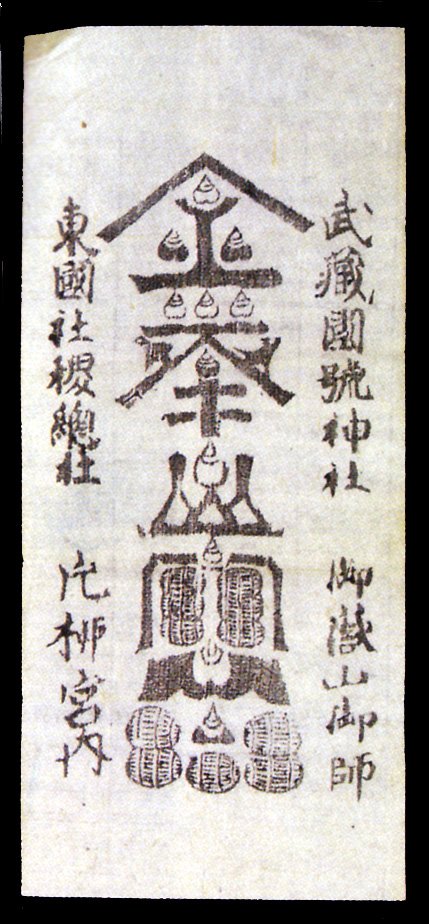 武藏國號神社 御嶽山御師
金峯山
東國社稷總社 片柳宮内